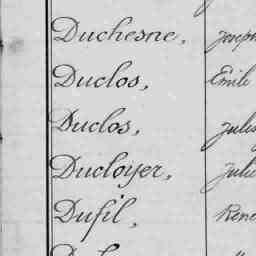 Duchesne, Joseph
Duclos, Émile
Duclos, Jules
Ducloyer, Julie
Dufil, René